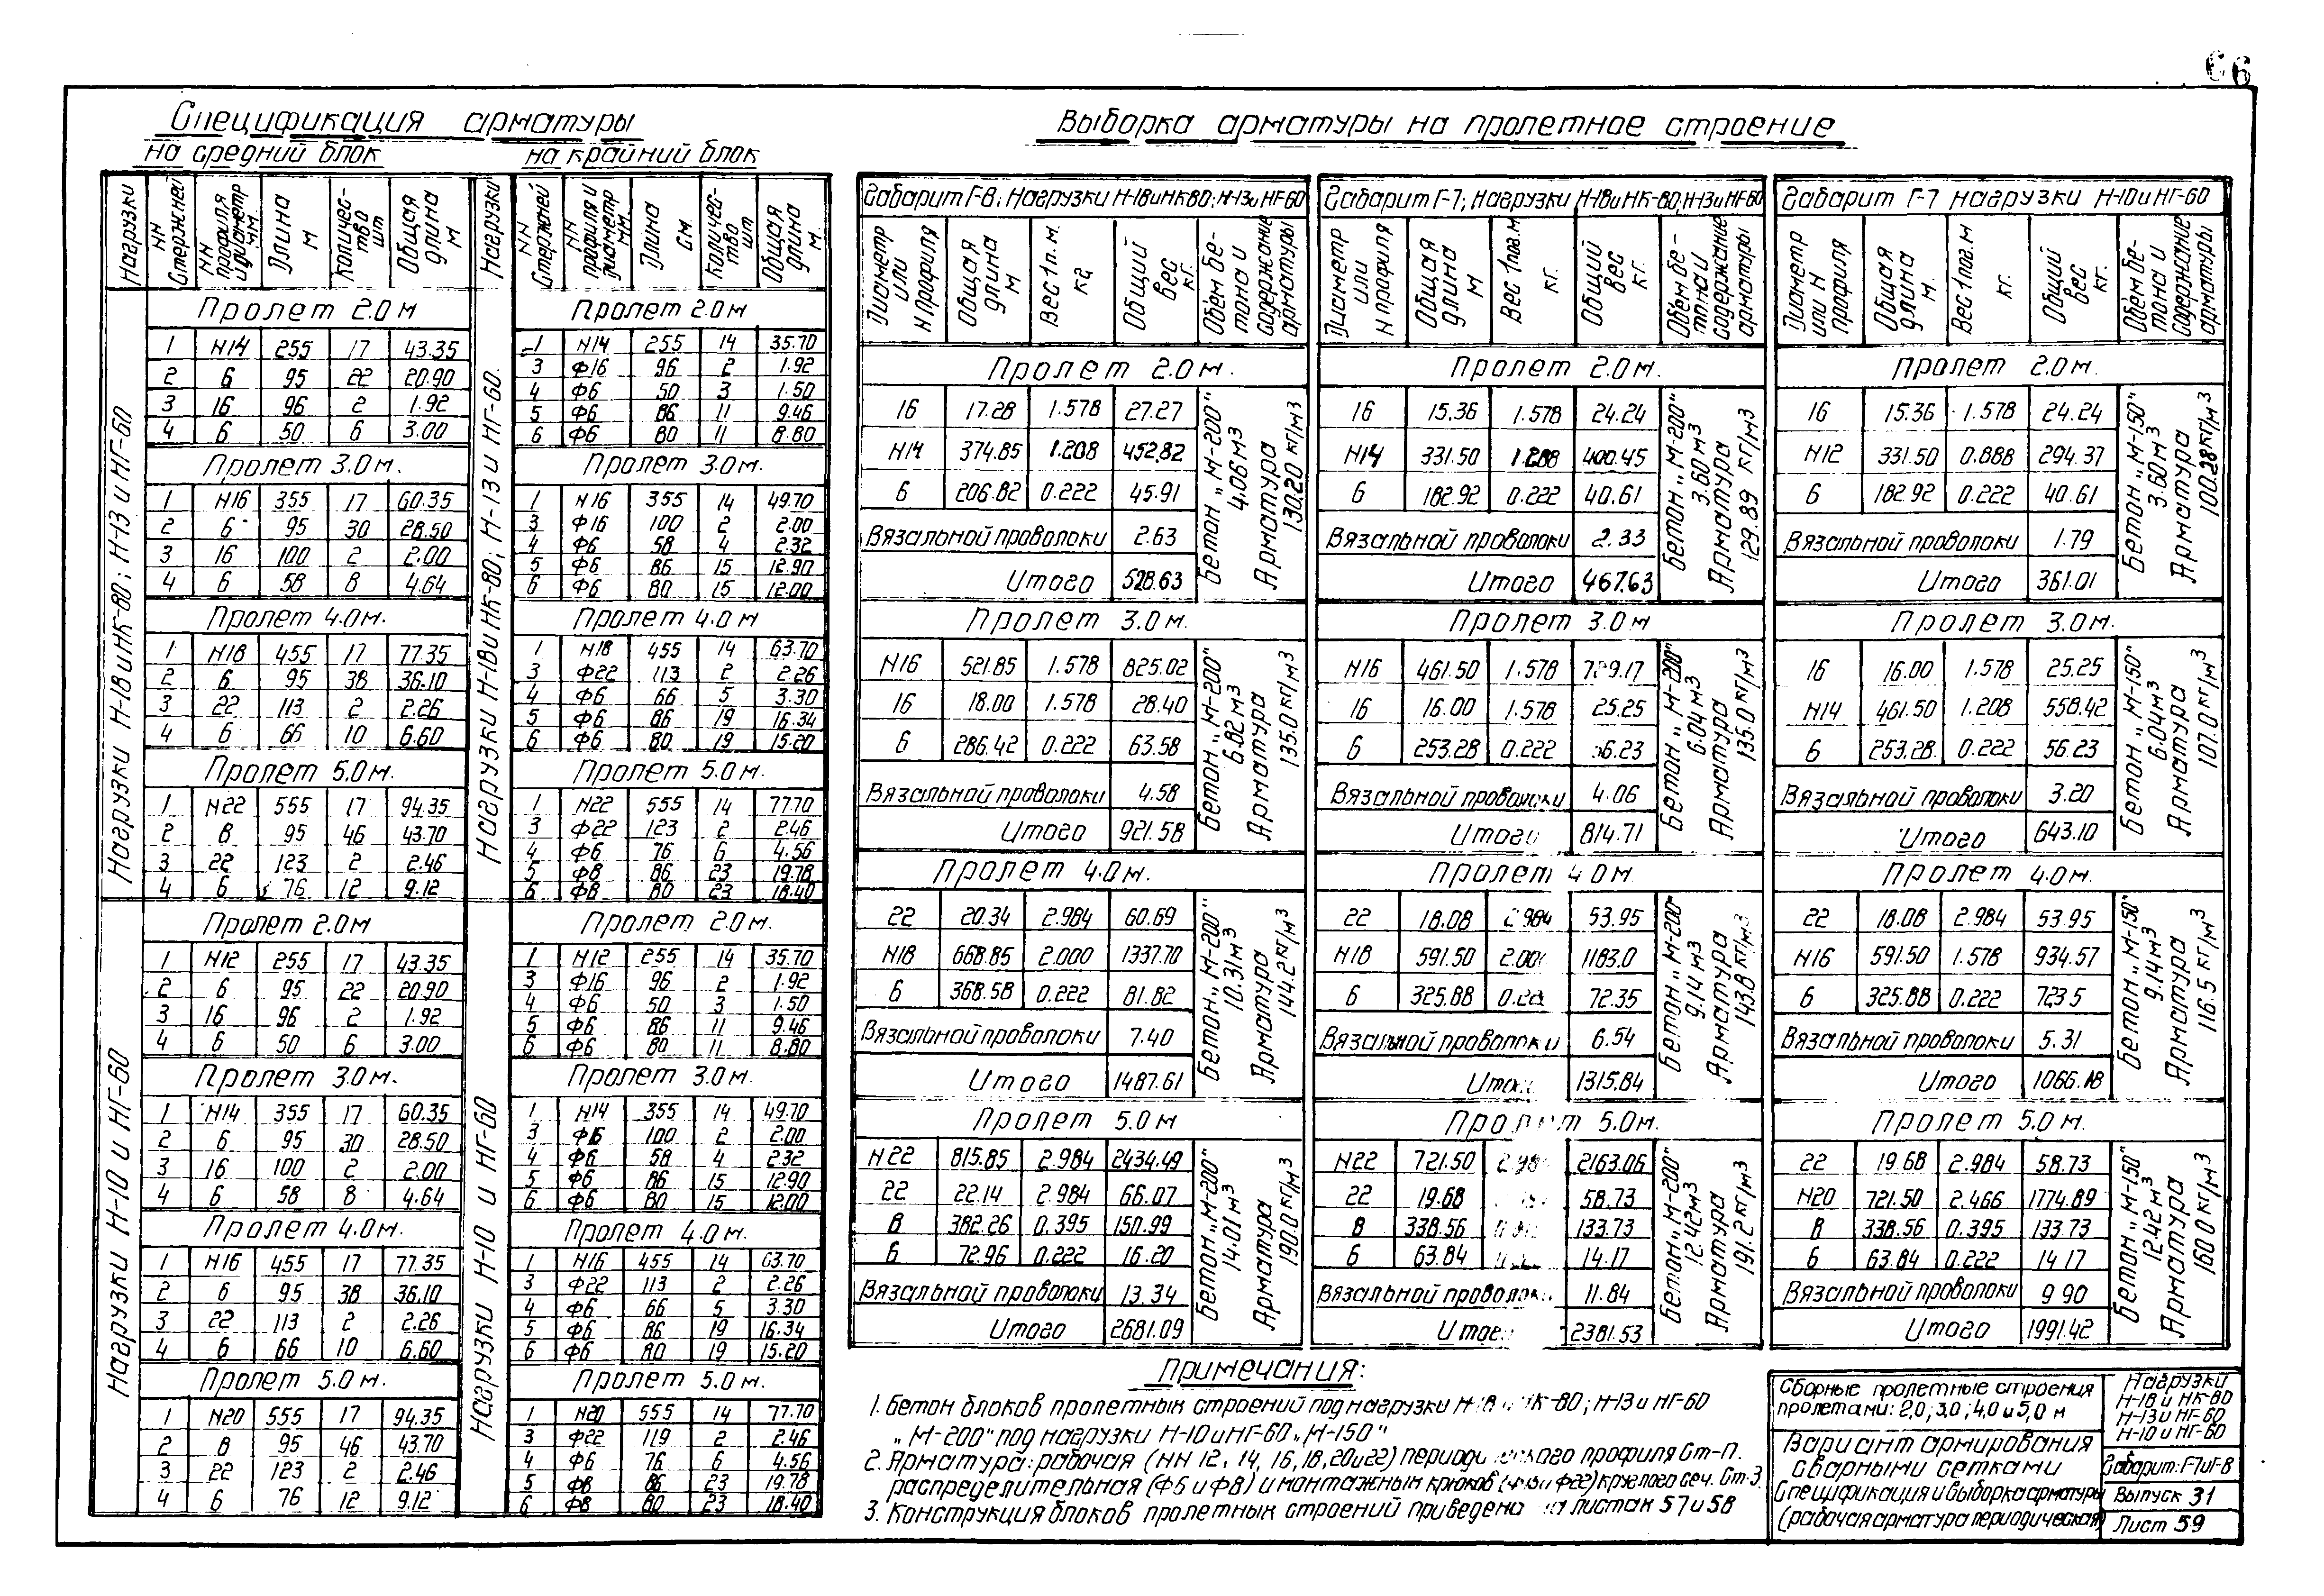 66
Спецификация арматуры
на средний блок
на крайний блок
Нагрузки | NN Стержней | NN профиля и диаметр мм. | Длина м | Количес-тво шт | Общая длина м
Нагрузки Н-18 и НК-80; Н-13 и НГ-60
Пролет 2.0 м
1 N14 255 17 43.35
2 6 95 22 20.90
3 16 96 2 1.92
4 6 50 6 3.00
Пролет 3.0 м.
1 N16 355 17 60.35
2 6 95 30 28.50
3 16 100 2 2.00
4 6 58 8 4.64
Пролет 4.0 м.
1 N18 455 17 77.35
2 6 95 38 36.10
3 22 113 2 2.26
4 6 66 10 6.60
Пролет 5.0 м.
1 N22 555 17 94.35
2 8 95 46 43.70
3 22 123 2 2.46
4 6 76 12 9.12
Нагрузки Н-10 и НГ-60
Пролет 2.0 м
1 N12 255 17 43.35
2 6 95 22 20.90
3 16 96 2 1.92
4 6 50 6 3.00
Пролет 3.0 м.
1 N14 355 17 60.35
2 6 95 30 28.50
3 16 100 2 2.00
4 6 58 8 4.64
Пролет 4.0 м.
1 N16 455 17 77.35
2 6 95 38 36.10
3 22 113 2 2.26
4 6 66 10 6.60
Пролет 5.0 м.
1 N20 555 17 94.35
2 8 95 46 43.70
3 22 123 2 2.46
4 6 76 12 9.12
Нагрузки | NN Стержней | NN профиля и диаметр мм | Длина см. | Количес-тво шт | Общая длина м.
Нагрузки Н-18 и НК-80; Н-13 и НГ-60.
Пролет 2.0 м
1 N14 255 14 35.70
3 Ф16 96 2 1.92
4 Ф6 50 3 1.50
5 Ф6 86 11 9.46
6 Ф6 80 11 8.80
Пролет 3.0 м.
1 N16 355 14 49.70
3 Ф16 100 2 2.00
4 Ф6 58 4 2.32
5 Ф6 86 15 12.90
6 Ф6 80 15 12.00
Пролет 4.0 м
1 N18 455 14 63.70
3 Ф22 113 2 2.26
4 Ф6 66 5 3.30
5 Ф6 86 19 16.34
6 Ф6 80 19 15.20
Пролет 5.0 м.
1 N22 555 14 77.70
3 Ф22 123 2 2.46
4 Ф6 76 6 4.56
5 Ф8 86 23 19.78
6 Ф8 80 23 18.40
Нагрузки Н-10 и НГ-60
Пролет 2.0 м
1 N12 255 14 35.70
3 Ф16 96 2 1.92
4 Ф6 50 3 1.50
5 Ф6 86 11 9.46
6 Ф6 80 11 8.80
Пролет 3.0 м.
1 N14 355 14 49.70
3 Ф16 100 2 2.00
4 Ф6 58 4 2.32
5 Ф6 86 15 12.90
6 Ф6 80 15 12.00
Пролет 4.0 м.
1 N16 455 14 63.70
3 Ф22 113 2 2.26
4 Ф6 66 5 3.30
5 Ф6 86 19 16.34
6 Ф6 80 19 15.20
Пролет 5.0 м.
1 N20 555 14 77.70
3 Ф22 119 2 2.46
4 Ф6 76 6 4.56
5 Ф8 86 23 19.78
6 Ф8 80 23 18.40
Выборка арматуры на пролетное строение
Габарит Г-8; Нагрузки Н-18 и НК80; Н-13 и НГ-60
Диаметр или N Профиля | Общая длина м | Вес 1 п.м. кг | Общий вес кг. | Объём бе-тона и содержание арматуры
Пролет 2.0 м.
16 17.28 1.578 27.27
N14 374.85 1.208 452.82
6 206.82 0.222 45.91
Вязальной проволоки 2.63
Итого 528.63
Бетон „М-200" 4.06 м3 Арматура 130.20 кг/м3
Пролет 3.0 м.
N16 521.85 1.578 825.02
16 18.00 1.578 28.40
6 286.42 0.222 63.58
Вязальной проволоки 4.58
Итого 921.58
Бетон „М-200" 6.82 м3 Арматура 135.0 кг/м3
Пролет 4.0 м.
22 20.34 2.984 60.69
N18 668.85 2.000 1337.70
6 368.58 0.222 81.82
Вязальной проволоки 7.40
Итого 1487.61
Бетон „М-200" 10.31 м3 Арматура 144.2 кг/м3
Пролет 5.0 м
N22 815.85 2.984 2434.49
22 22.14 2.984 66.07
8 382.26 0.395 150.99
6 72.96 0.222 16.20
Вязальной проволоки 13.34
Итого 2681.09
Бетон „М-200" 14.01 м3 Арматура 190.0 кг/м3
Габарит Г-7; Нагрузки Н-18 и НК-80; Н-13 и НГ-60
Диаметр или N профиля | Общая длина м | Вес 1 пог. м кг. | Общий вес кг. | Объём бе-тона и содержание арматуры
Пролет 2.0 м.
16 15.36 1.578 24.24
N14 331.50 400.45
6 182.92 0.222 40.61
Вязальной проволоки 2.33
Итого 467.63
Бетон „М-200" 3.60 м3 Арматура 129.89 кг/м3
Пролет 3.0 м
N16 461.50 1.578
16 16.00 1.578 25.25
6 253.28 0.222
Вязальной проволоки 4.06
Итого 814.71
Бетон „М-200" 6.04 м3 Арматура 135.0 кг/м3
Пролет 4.0 м.
22 18.08 53.95
N18 591.50 1183.0
6 325.88 72.35
Вязальной проволоки 6.54
Итого 1315.84
Бетон „М-200" 9.14 м3 Арматура 143.8 кг/м3
Пролет 5.0 м.
N22 721.50 2163.06
22 19.68 58.73
8 338.56 133.73
6 63.84 14.17
Вязальной проволоки 11.84
Итого 2381.53
Бетон „М-200" 12.42 м3 Арматура 191.2 кг/м3
Габарит Г-7 Нагрузки Н-10 и НГ-60
Диаметр или N профиля | Общая длина м. | Вес 1 пог. м кг. | Общий вес кг. | Объём бе-тона и содержание арматуры
Пролет 2.0 м.
16 15.36 1.578 24.24
N12 331.50 0.888 294.37
6 182.92 0.222 40.61
Вязальной проволоки 1.79
Итого 361.01
Бетон „М-150" 3.60 м3 Арматура 100.28 кг/м3
Пролет 3.0 м.
16 16.00 1.578 25.25
N14 461.50 1.208 558.42
6 253.28 0.222 56.23
Вязальной проволоки 3.20
Итого 643.10
Бетон „М-150" 6.04 м3 Арматура 107.0 кг/м3
Пролет 4.0 м.
22 18.08 2.984 53.95
N16 591.50 1.578 934.57
6 325.88 0.222 723.5
Вязальной проволоки 5.31
Итого 1066.18
Бетон „М-150" 9.14 м3 Арматура 116.5 кг/м3
Пролет 5.0 м.
22 19.68 2.984 58.73
N20 721.50 2.466 1774.89
8 338.56 0.395 133.73
6 63.84 0.222 14 17
Вязальной проволоки 9 90
Итого 1991.42
Бетон „М-150" 12.42 м3 Арматура 160 0 кг/м3
Примечания:
1. Бетон блоков пролетных строений под нагрузки Н-18 и НК-80; Н-13 и НГ-60
„М-200" под нагрузки Н-10 и НГ-60 „М-150"
2. Арматура: рабочая (NN 12, 14, 16, 18, 20 и 22) профиля Ст-П.
распределительная (Ф6 и Ф8) и монтажных крюков (Ф16 и Ф22) круглого сеч. Ст-3.
3. Конструкция блоков пролетных строений приведена на листах 57 и 58
Сборные пролетные строения
пролетами: 2,0; 3,0; 4,0 и 5,0 м.
Вариант армирования
сварными сетками
Спецификация и выборка арматуры
(рабочая арматура периодическая)
Нагрузки
Н-18 и НК-80
Н-13 и НГ-60
Н-10 и НГ-60
Габарит: Г7 и Г-8
Выпуск 31
Лист 59